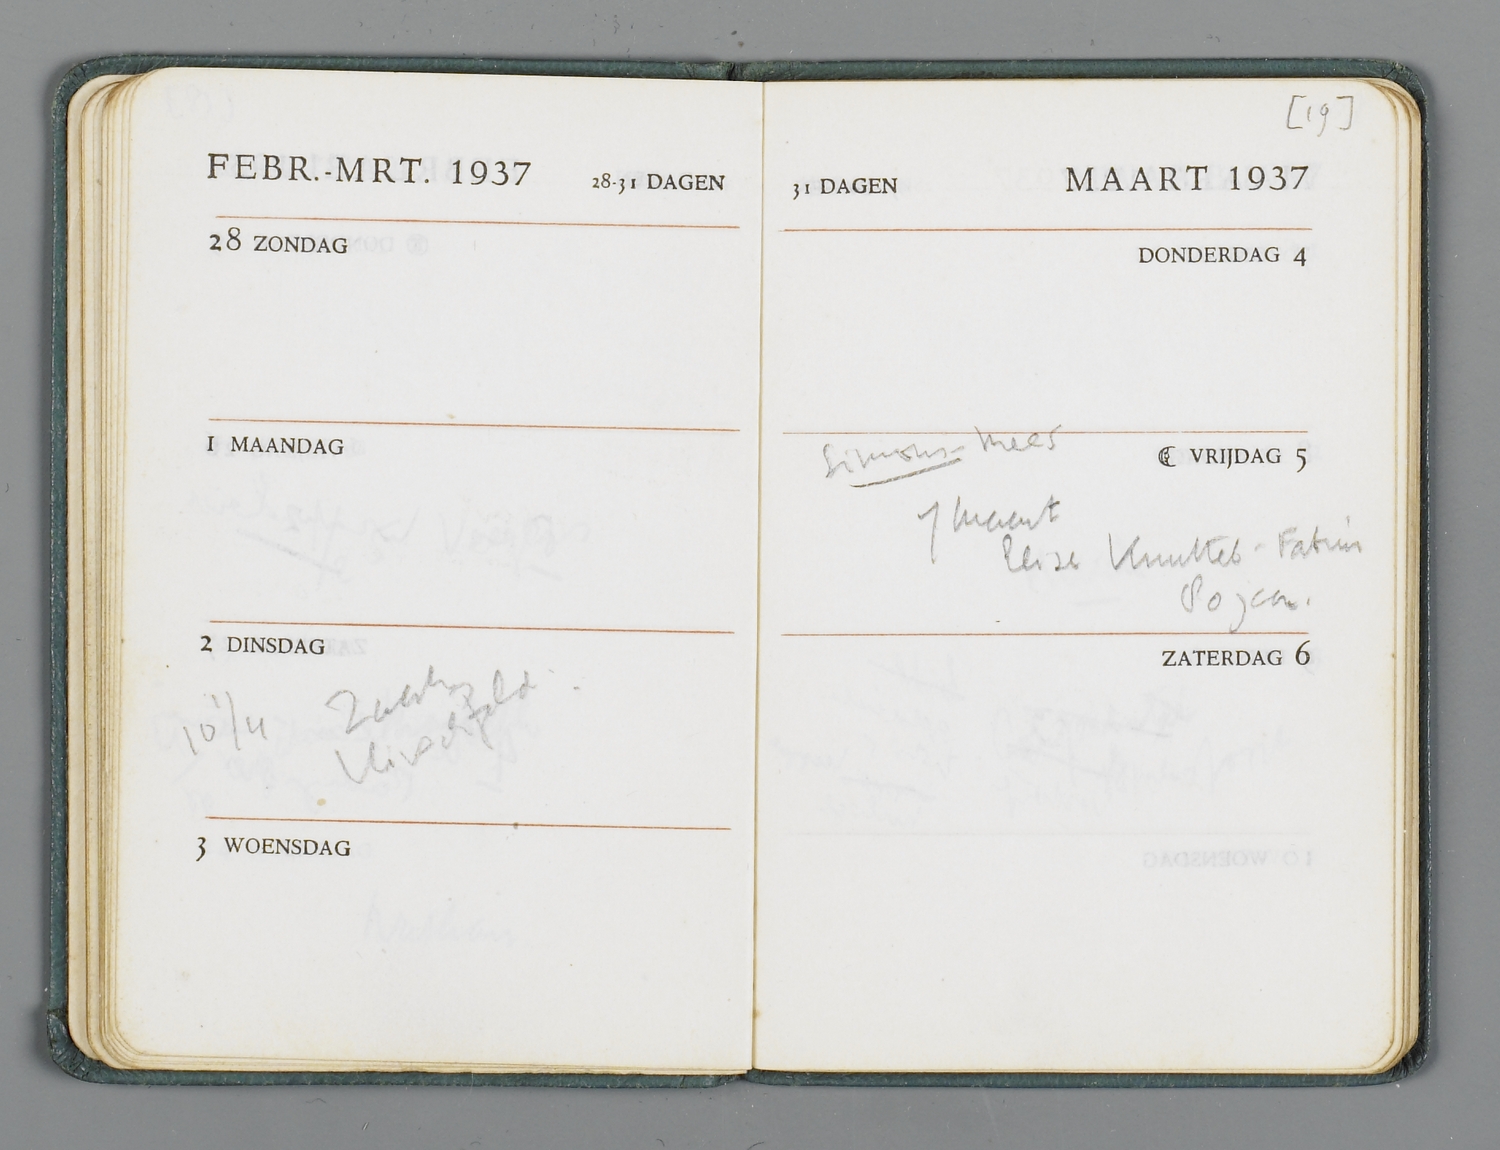 FEBR.-MRT. 1937 28-31 DAGEN
28 ZONDAG
1 MAANDAG
2 DINSDAG
3 WOENSDAG
[19]
31 DAGEN MAART 1937
DONDERDAG 4
Simons-Mees
☾ VRIJDAG 5
7 Maart
Elize Knuttel-Fabius
80 jaar.
ZATERDAG 6